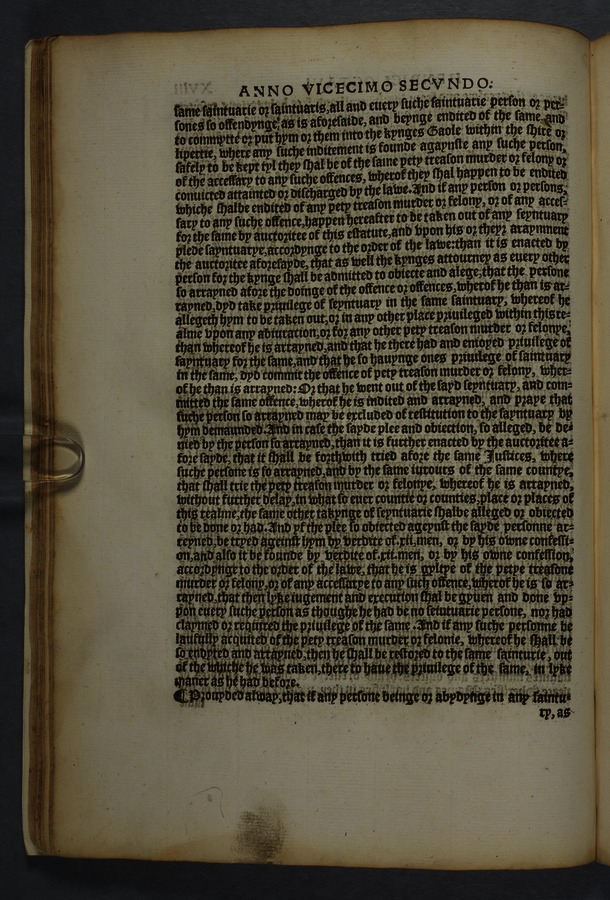 ANNO VICECIMO SECVNDO.
same saintuarie or saintuaris, all and euery suche saintuarie person or per-
sones so offendynge, as is aforesaide, and beynge endited of the same, and
to commytte or put hym or them into the kynges Gaole within the shire or
lipertie, where any suche inditement is founde agaynste any suche person,
safely to be kept tyl they shal be of the same pety treason murder or felony or
of the accessary to any suche offences, wherof they shal happen to be endited
conuicted attainted or discharged by the lawe. And if any person or persons,
whiche shalbe endited of any pety treason murder or felony, or of any acces-
sary to any suche offence, happen hereafter to be taken out of any seyntuary
for the same by auctoritee of this estatute, and vpon his or theyr araynment
plede sayntuarye, accordynge to the order of the lawe: than it is enacted by
the auctoritee aforesayde, that as well the kynges attourney as euery other
person for the kynge shall be admitted to obiecte and alege, that the persone
so arrayned afore the doinge of the offence or offences, wherof he than is ar-
rayned, dyd take priuilege of seyntuary in the same saintuary, whereof he
allegeth hym to be taken out, or in any other place priuileged within this re-
alme vpon any abiuracion, or for any other pety treason murder or felonye,
than whereof he is arrayned, and that he there had and enioyed priuilege of
sayntuary for the same, and that he so hauynge ones priuilege of saintuary
in the same, dyd commit the offence of pety treason murder or felony, wher-
of he than is arrayned: Or that he went out of the sayd seyntuary, and com-
mitted the same offence, wherof he is indited and arrayned, and praye that
suche person so arrayned may be excluded of restitution to the sayntuary by
hym demaunded. And in case the sayde plee and obiection, so alleged, be de-
nied by the person so arrayned, than it is further enacted by the auctoritee a-
fore sayde, that it shall be forthwith tried afore the same Justices, where
suche persone is so arrayned, and by the same iurours of the same countye,
that shall trie the pety treason murder or felonye, whereof he is arrayned,
without further delay, in what so euer countie or counties, place or places of
this realme, the same other takynge of seyntuarie shalbe alleged or obiected
to be done or had. And yf the plee so obiected ageynst the sayde personne ar-
reyned, be tryed ageinst hym by verdite of .xii. men, or by his owne confessi-
on, and also it be founde by verdite of .xii. men, or by his owne confession,
accordynge to the order of the lawe, that he is gyltye of the petye treasone
murder or felony, or of any accessarye to any such offence, wherof he is so ar-
rayned, that then lyke iugement and execution shal be gyuen and done vp-
pon euery suche person as thoughe he had be no seintuarie persone, nor had
claymed or required the priuilege of the same. And if any suche personne be
laufully acquited of the pety treason murder or felonie, whereof he shall be
so endyted and arrayned, then he shall be restored to the same sainturie, out
of the whiche he was taken, there to haue the priuilege of the same, in lyke
maner as he had before.
¶ Prouyded alway, that if any persone beinge or abydynge in any saintu-
ry, as